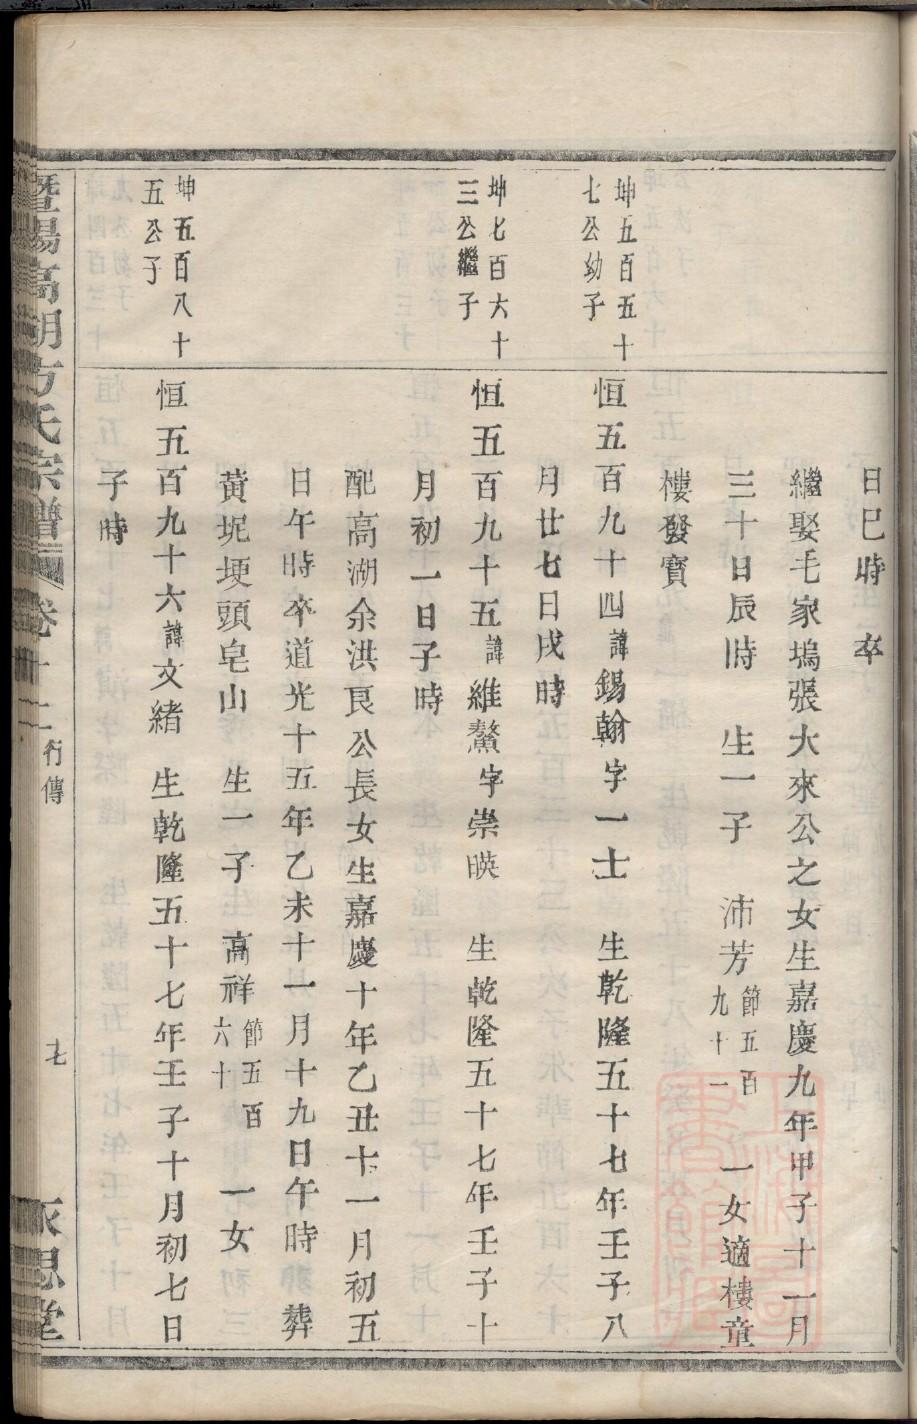 日巳時 卒
繼娶毛家塢張大來公之女生嘉慶九年甲子十一月
三十日辰時 生一子 沛芳 節五百九十一 一女適樓童
樓發寳
坤五百五十
七公幼子
恒五百九十四諱錫翰字一士 生乾隆五十七年壬子八
月廿七日戌時
坤七百六十
三公繼子
恒五百九十五諱維鰲字崇暎 生乾隆五十七年壬子十
月初一日子時
配高湖余洪良公長女生嘉慶十年乙丑十一月初五
日午時卒道光十五年乙未十一月十九日午時 葬
黃坭埂頭皂山 生一子 高祥 節五百六十 一女
坤五百八十
五公子
恒五百九十六諱文緒 生乾隆五十七年壬子十月初七日
子時
暨陽高湖方氏宗譜 卷十二 行傳 永思堂